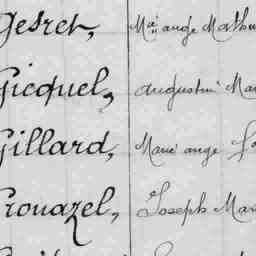 Gesret, Mie ange Mathu
Gicquel, augustin Mar
Gillard, Marie ange
Grouazel, Joseph Mar